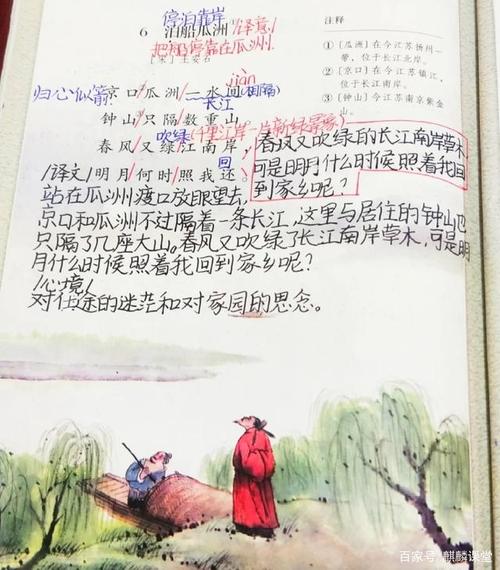 停泊靠岸
6 泊船瓜洲① /译意/
把船停靠在瓜洲.
[宋] 王安石
jiàn
归心似箭 京口/瓜洲/一水间(相隔)
长江
钟山/只隔/数重山。
吹绿 (千里江岸一片新绿景象)
春风/又绿/江南岸,
回
明月/何时/照我还。
注释
①〔瓜洲〕在今江苏扬州一
带,位于长江北岸。
②〔京口〕在今江苏镇江,
位于长江南岸。
③〔钟山〕今江苏南京紫金
山。
春风又吹绿的长江南岸草木
可是明月什么时候照着我回
到家乡呢?
/译文/
站在瓜洲渡口放眼望去,
京口和瓜洲不过隔着一条长江,这里与居住的钟山也
只隔了几座大山。春风又吹绿了长江南岸草木,可是明
月什么时候照着我回到家乡呢?
/心境/
对仕途的迷茫和对家园的思念。
百家号·麒麟课堂